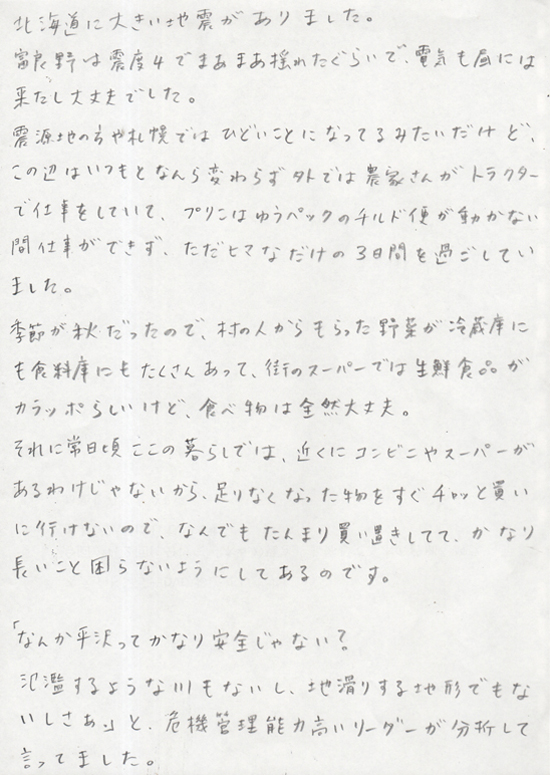 北海道に大きい地震がありました。
富良野は震度4でまあまあ揺れたぐらいで、電気も昼には
来たし大丈夫でした。
震源地の方や札幌ではひどいことになってるみたいだけど、
この辺はいつもとなんら変わらず外では農家さんがトラクター
で仕事をしていて、プリンはゆうパックのチルド便が動かない
間仕事ができず、ただヒマなだけの3日間を過ごしてい
ました。
季節が秋だったので、村の人からもらった野菜が冷蔵庫に
も食料庫にもたくさんあって、街のスーパーでは生鮮食品が
カラッポらしいけど、食べ物は全然大丈夫。
それに常日頃ここの暮らしでは、近くにコンビニやスーパーが
あるわけじゃないから、足りなくなった物をすぐチャッと買い
に行けないので、なんでもたんまり買い置きしてて、かなり
長いこと困らないようにしてあるのです。
「なんか平沢ってかなり安全じゃない?
氾濫するような川もないし、地滑りする地形でもな
いしさぁ」と、危機管理能力高いリーダーが分析して
言ってました。